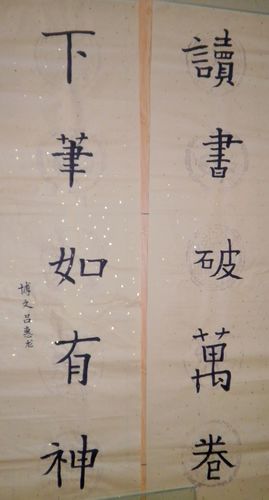 讀書破萬卷
下筆如有神
博文呂惠龙